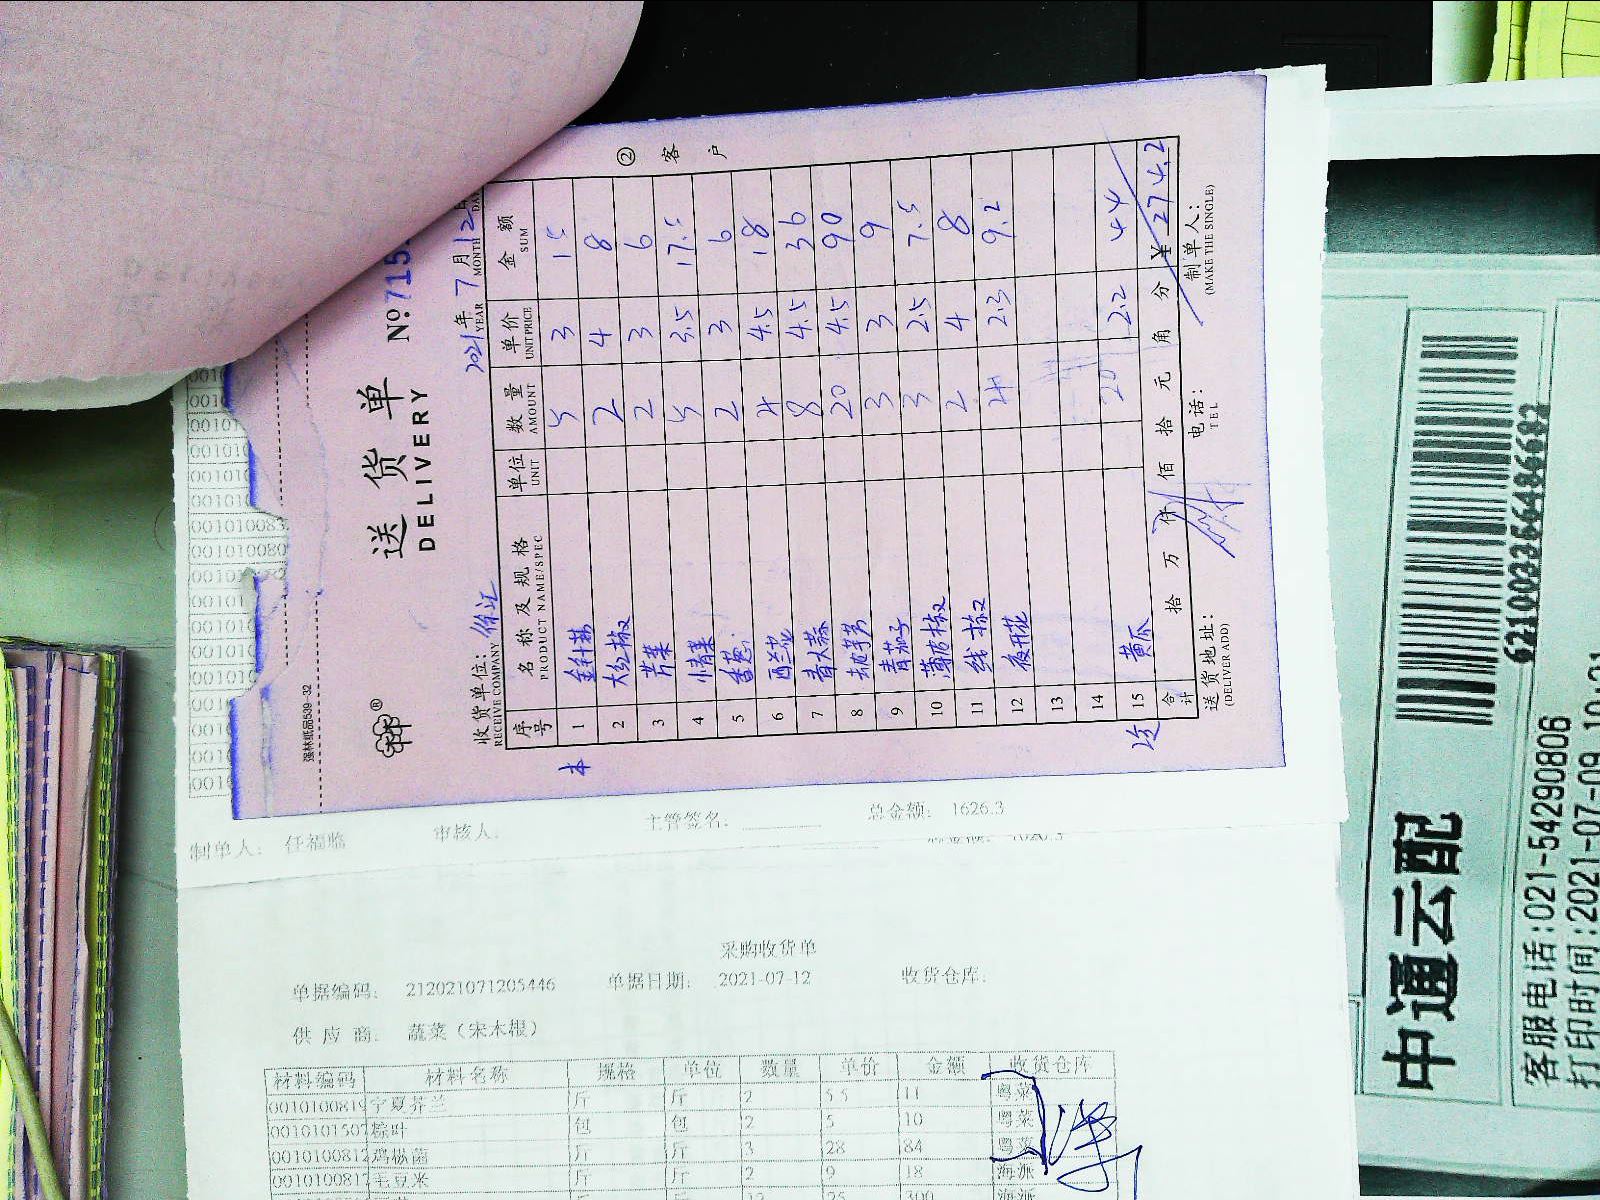 送货单
DELIVERY
No:715
收货单位: 徐汇
RECEIVE COMPANY
2021年 7月12日
YEAR MONTH
② 客户
序号 名称及规格 单位 数量 单价 金额
PRODUCT NAME/SPEC UNIT AMOUNT UNIT PRICE SUM
本
1 金针菇 5 3 15
2 大红椒 2 4 8
3 芹菜 2 3 6
4 5 3.5 17.5
5 香葱 2 3 6
6 西兰花 4 4.5 18
7 青大蒜 8 4.5 36
8 20 4.5 90
9 青茄子 3 3 9
10 薄皮椒 3 2.5 7.5
11 线椒 2 4 8
12 夜开花 4 2.3 9.2
13
14
15 黄瓜 20 2.2 44
合计 拾 万 仟 佰 拾 元 角 分 ¥274.2
送货地址: 电话: 制单人:
(DELIVER ADD) TEL (MAKE THE SINGLE)
强林纸品539-32
制单人: 任福临 审核人: 主管签名: 总金额: 1626.3
采购收货单
单据编码: 212021071205446 单据日期: 2021-07-12 收货仓库:
供应商: 蔬菜(宋木根)
材料编码 材料名称 规格 单位 数量 单价 金额 收货仓库
001010081 宁夏芥兰 斤 斤 2 5.5 11 粤菜
001010150 棕叶 包 包 2 5 10 粤菜
001010081 鸡枞菌 斤 斤 3 28 84 粤菜
001010081 毛豆米 斤 斤 2 9 18 海派
12 25 300 海派
中通云配
客服电话:021-54290806
打印时间:2021-07-09 10:21